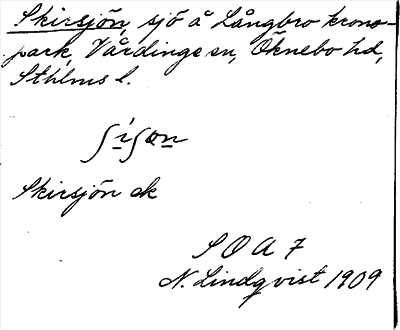 Skirsjön, sjö å Långbro krono-
park, Vårdinge sn, Öknebo hd,
Sthlms l.
ʃi̱ʃøṉ
Skirsjön ek
S O A 7
N. Lindqvist 1909